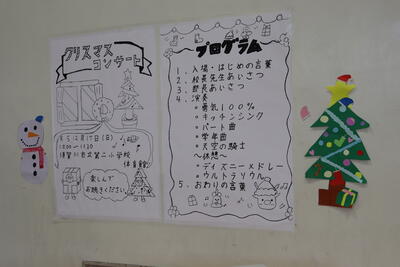 クリスマス
コンサート
12月17日(日)
楽しんで
お聴きください
プログラム
1. 入場・はじめの言葉
2. 校長先生あいさつ
3. 部長あいさつ
4. 演奏
勇気100%
キッチンシンク
パート曲
学年曲
天空の騎士
〜休憩〜
ディズニー×ドレー
ウルトラソウル
5. おわりの言葉